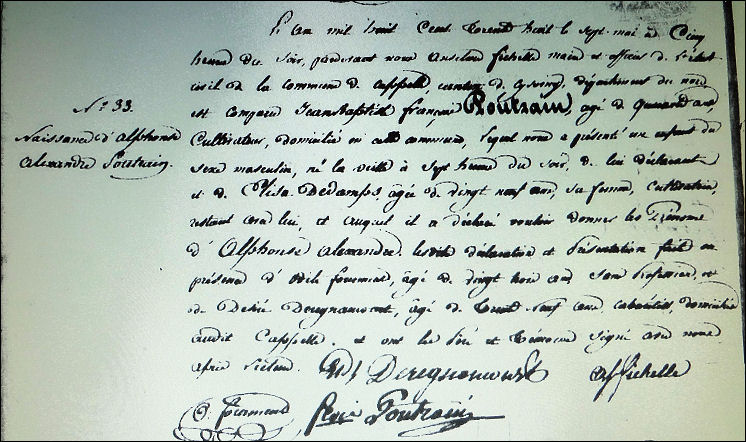 L'an mil huit Cent trente huit le sept mai à Cinq
heures du soir, pardevant nous anselme fichelle maire et officier de l'état
civil de la commune de cappelle, canton de cysoing, département du nord
N.º 33.
est comparu Jean Baptiste françois Poutrain, agé de quarante ans,
Naissance d'alphonse
alexandre Poutrain.
Cultivateur, domicilié en cette commune, lequel nous a présenté un enfant du
sexe masculin, né la veille à sept heures du soir, de lui déclarant
et de Elisa Decamps, agée de vingt neuf ans, sa femme, Cultivatrice,
restant avec lui, et auquel il a déclaré vouloir donner les Prénoms
d'Alphonse alexandre. lesdites déclaration et Présentation faites en
présence d'Odile fourmeau, agé de vingt trois ans sans Profession, et
de Desiré Deregnaucourt, agé de trente neuf ans, cabaretier, domiciliés
audit Cappelle. et ont les Père et témoins signé avec nous
après lecture.
Dt Deregnaucourt
afichelle
O. fourmeau
fçois Poutrain